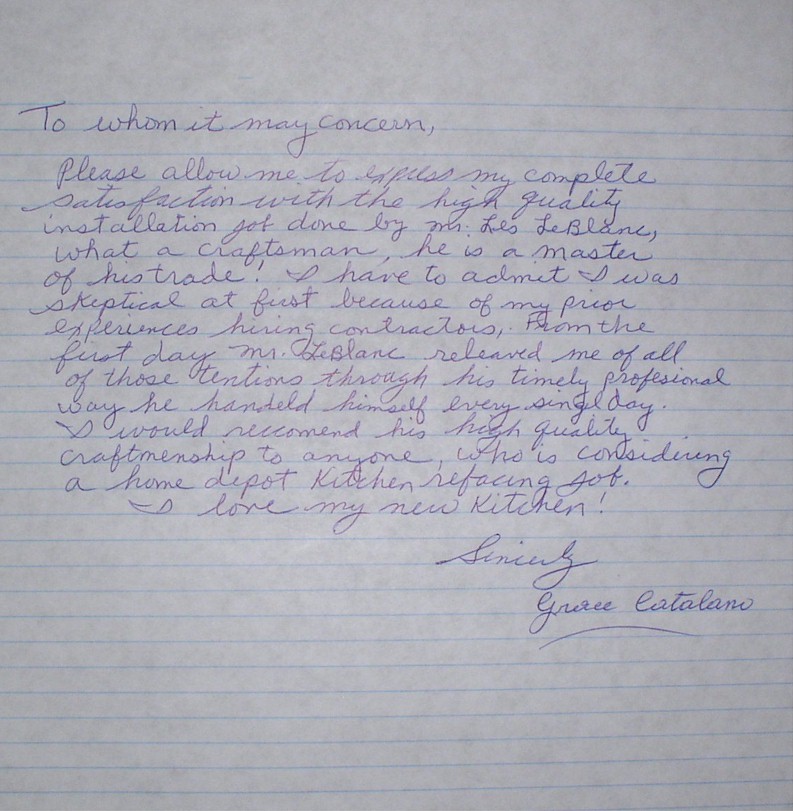 To whom it may concern,
Please allow me to express my complete
satisfaction with the high quality
installation job done by mr. Les LeBlanc,
what a craftsman, he is a master
of his trade! I have to admit I was
skeptical at first because of my prior
experiences hiring contractors,. From the
first day mr. LeBlanc releaved me of all
of those tentions through his timely profesional
way he handeld himself every singel day.
I would reccomend his high quality
craftmenship to anyone, who is considering
a home depot Kitchen refacing job.
I love my new Kitchen!
Sincerly
Grace Catalano